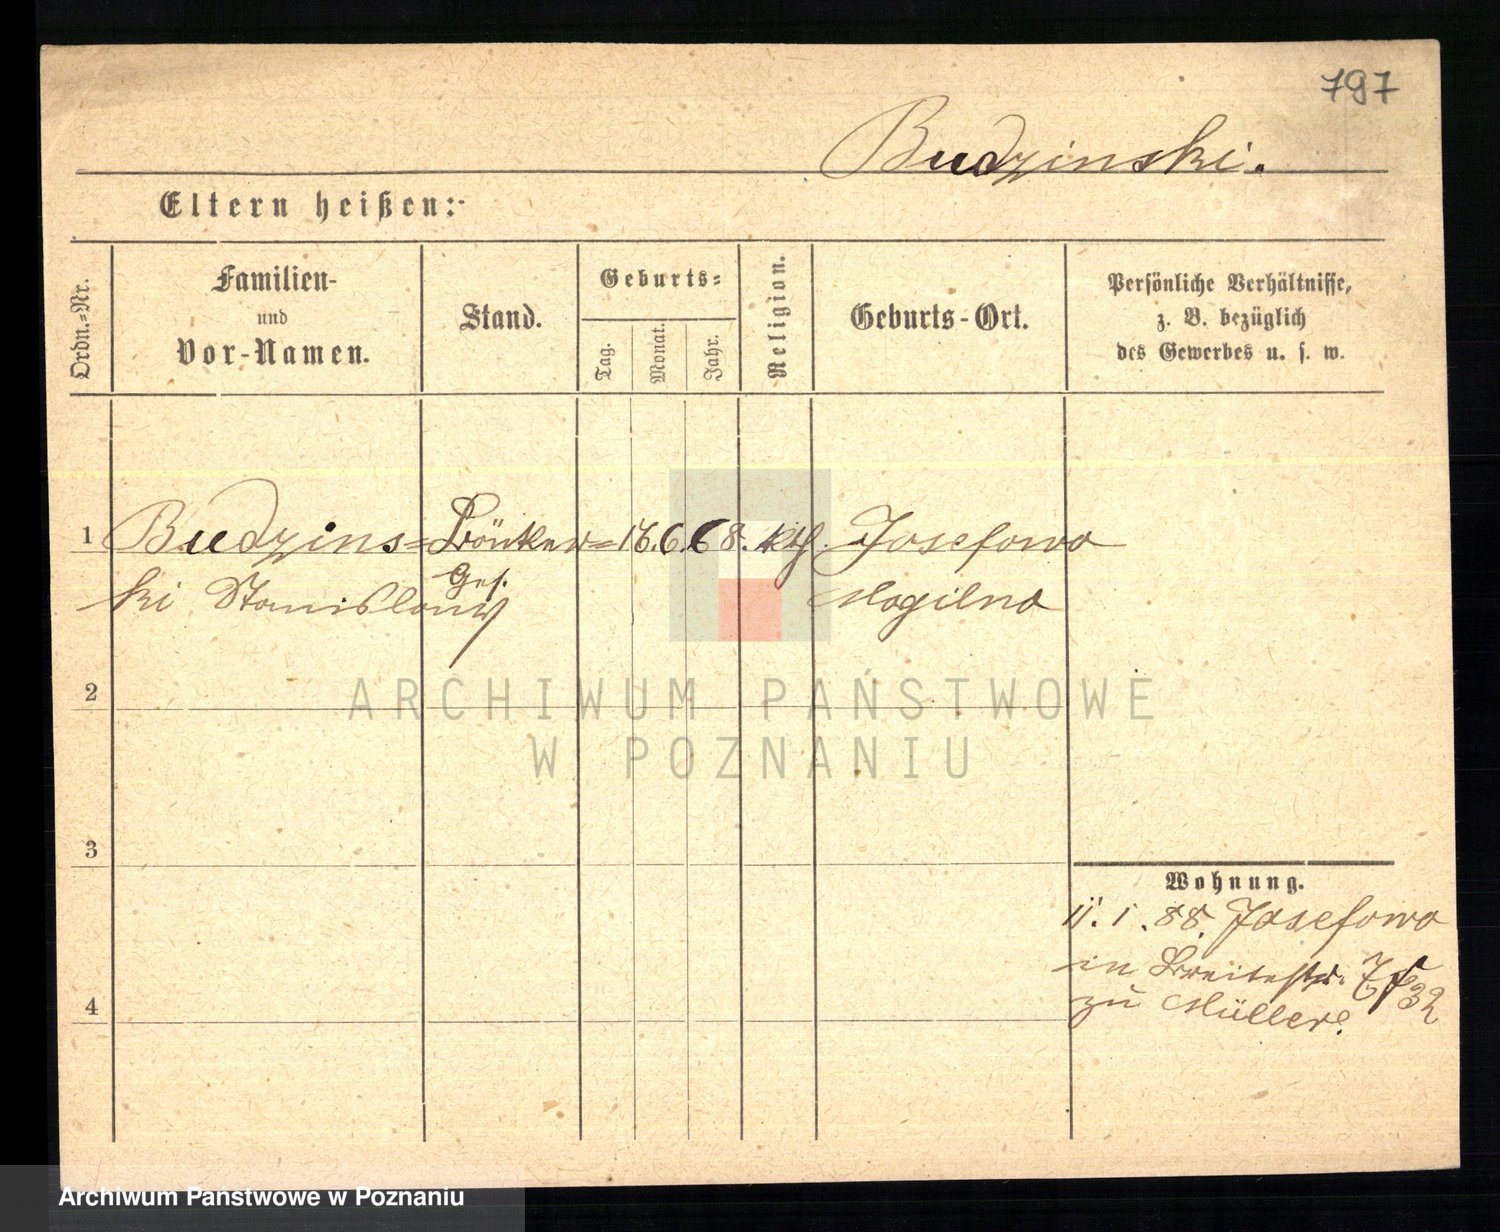 797
Budzinski.
Eltern heißen:
Ordn.-Nr.
Familien-
und
Vor-Namen.
Stand.
Geburts-
Tag.
Monat.
Jahr.
Religion.
Geburts-Ort.
Persönliche Verhältnisse,
z. B. bezüglich
des Gewerbes u. s. w.
1 Budzins= 6. 68. kth. Josefowo
Ges.
ki Stanislaus Mogilno
2
ARCHIWUM PAŃSTWOWE
W POZNANIU
3
Wohnung.
11. 1. 88. Josefowo
in Breitestr.
zu Müller.
4
Archiwum Państwowe w Poznaniu